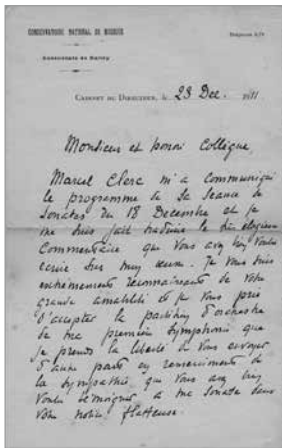 CONSERVATOIRE NATIONAL DE MUSIQUE
Succursale de Nancy
CABINET DU DIRECTEUR, le 23 Dec. 1911
Monsieur et honoré Collègue,
Marcel Clerc m'a communiqué
le programme de sa séance de
Sonates du 18 Décembre et je
me suis fait traduire le élogieux
Commentaire que vous avez bien voulu
écrire sur mon œuvre. Je vous suis
extrêmement reconnaissant de votre
grande amabilité et je vous prie
d'accepter la partition d'orchestre
de ma première Symphonie que
je prends la liberté de vous envoyer
d'autre part en remerciements de
la sympathie que vous avez bien
voulu témoigner à ma Sonate dans
votre notice flatteuse.